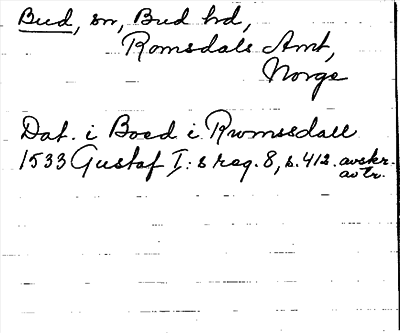 Bud, sn, Bud hd,
Romsdals Amt,
Norge
Dat. i Boed i Rwmssdall
1533 Gustaf I:s reg. 8, s. 412. avskr.
avtr.